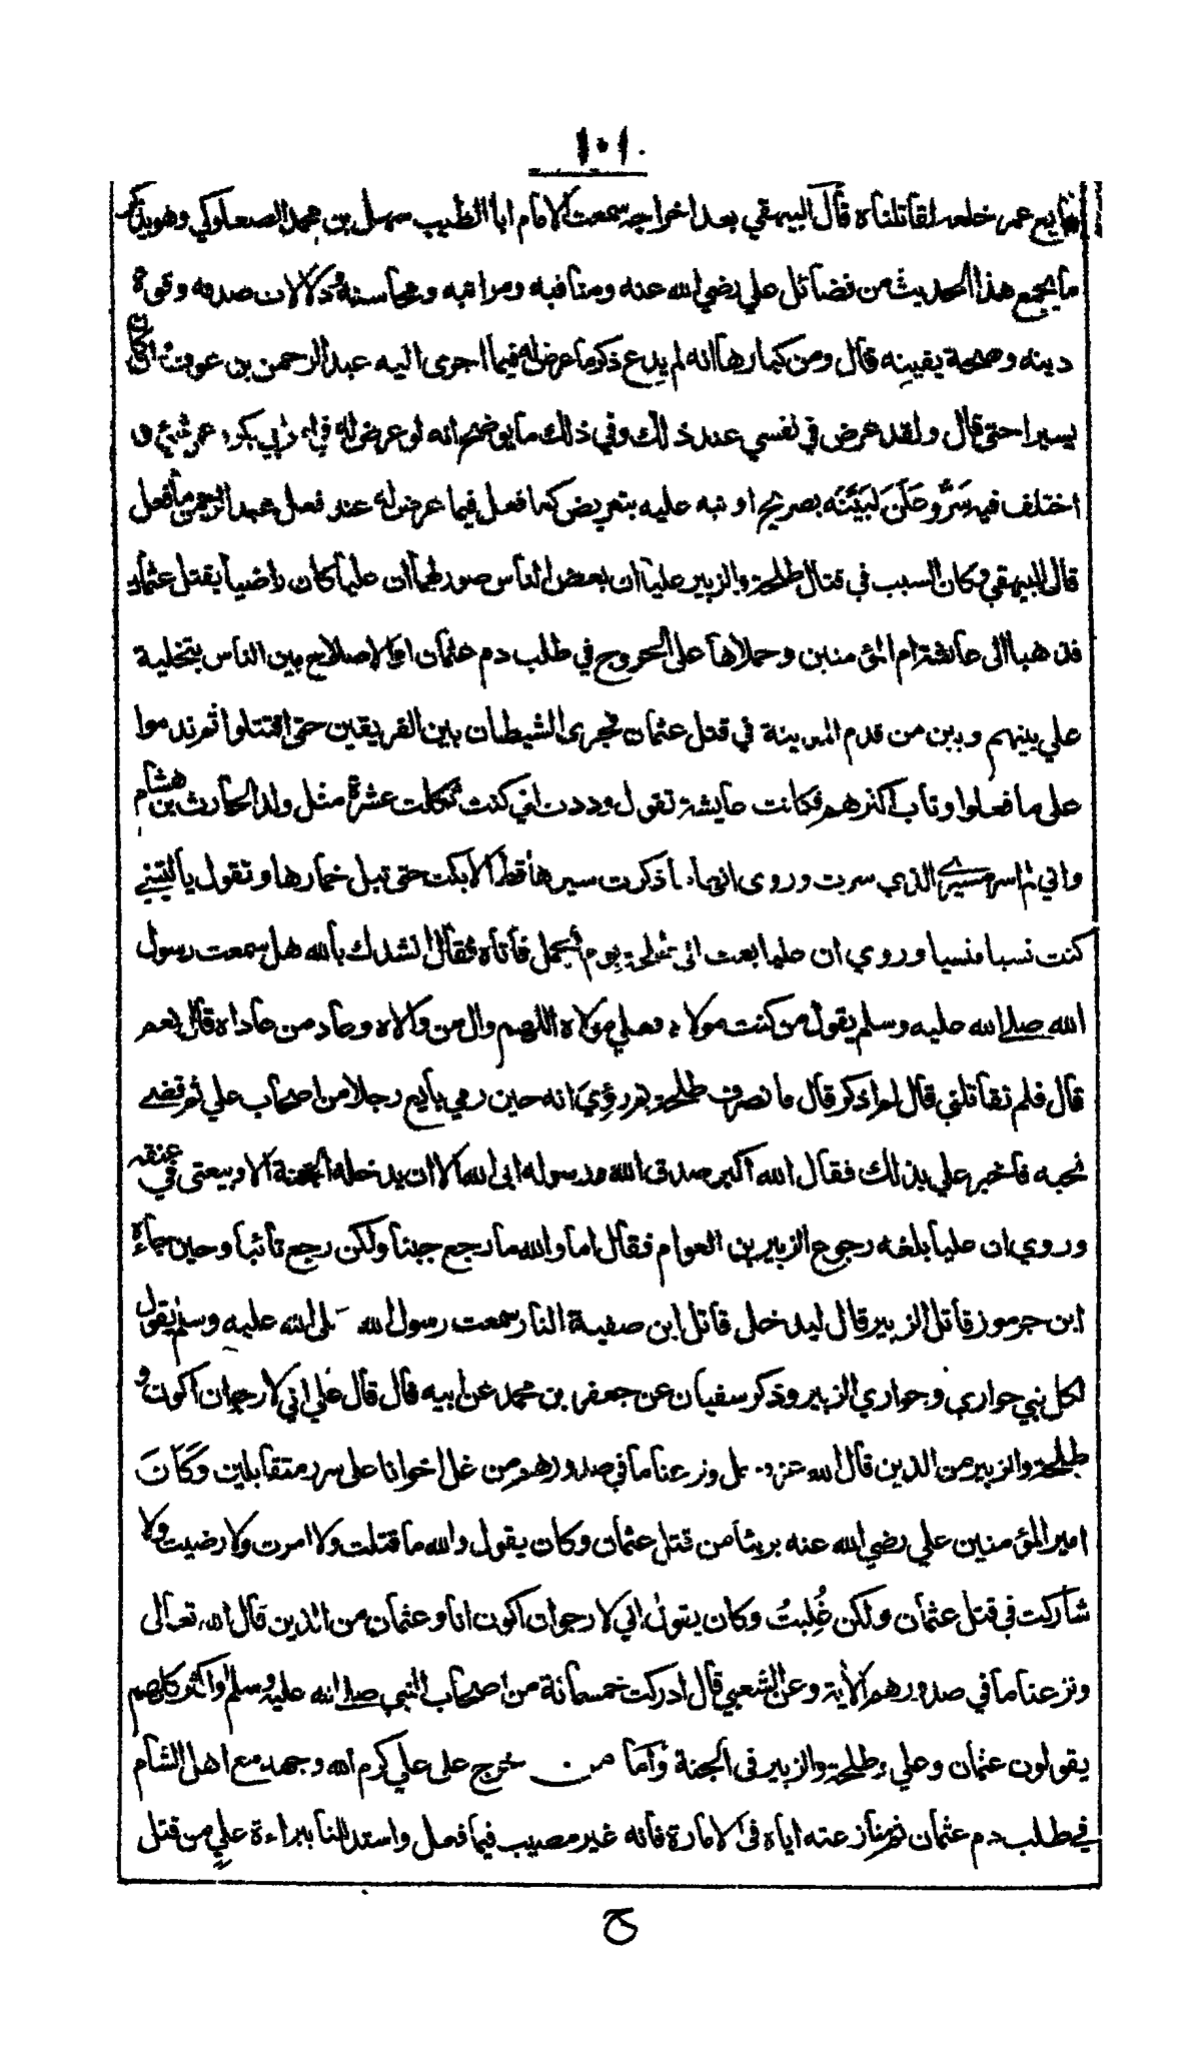 ١٠١
بايع عمر خلعه لقاتلناه قال البيهقي بعد اخراجه سمعت الامام ابا الطيب سهل بن محمد الصعلوكي وهو يذكر
ما يجمع هذا الحديث من فضائل علي رضي الله عنه ومناقبه ومراتبه ومحاسنه ودلالات صدقه وقوة
دينه وصحة يقينه قال ومن كبارها انه لم يدع ذكر ما عرض له فيما اجرى اليه عبد الرحمن بن عوف وان كان
يسيرا حتى قال ولقد عرض في نفسي عند ذلك وفي ذلك ما يوضح انه لو عرض له في ابي بكر وعمر شيء
اختلف فيه سره وعلنه لبينه بصريح او نبه عليه بتعريض كما فعل فيما عرض له عند فعل عبد الرحمن ما فعل
قال البيهقي وكان السبب في قتال طلحة والزبير عليا ان بعض الناس صور لهما ان عليا كان راضيا بقتل عثمان
فذهبا الى عائشة ام المؤمنين وحملاها على الخروج في طلب دم عثمان والاصلاح بين الناس بتخلية
علي بينهم وبين من قدم المدينة في قتل عثمان فجرى الشيطان بين الفريقين حتى اقتتلوا ثم ندموا
على ما فعلوا وتاب اكثرهم فكانت عايشة تقول وددت اني كنت ثكلت عشرة مثل ولد الحارث بن هشام
واني لم اسر مسيري الذي سرت وروى انها ما ذكرت سيرها قط الا بكت حتى تبل خمارها وتقول يا ليتني
كنت نسيا منسيا وروي ان عليا بعث الى طلحة يوم الجمل فاتاه فقال انشدك بالله هل سمعت رسول
الله صلى الله عليه وسلم يقول من كنت مولاه فعلي مولاه اللهم وال من والاه وعاد من عاداه قال نعم
قال فلم تقاتلني قال لم اذكر قال فانصرف طلحة ثم روي انه حين رمي بايع رجلا من اصحاب علي ثم قضى
نحبه فاخبر علي بذلك فقال الله اكبر صدق الله ورسوله ابى الله الا ان يدخله الجنة الا وبيعتي في عنقه
وروي ان عليا بلغه رجوع الزبير بن العوام فقال اما والله ما رجع جبنا ولكن رجع تائبا وحين جاءه
ابن جرموز قاتل الزبير قال ليدخل قاتل ابن صفية النار سمعت رسول الله صلى الله عليه وسلم يقول
لكل نبي حواري وحواري الزبير وذكر سفيان عن جعفر بن محمد عن ابيه قال قال علي اني لارجو ان اكون و
طلحة والزبير من الذين قال الله عز وجل ونزعنا ما في صدورهم من غل اخوانا على سرر متقابلين وكان
امير المؤمنين علي رضي الله عنه بريئا من قتل عثمان وكان يقول والله ما قتلت ولا امرت ولا رضيت ولا
شاركت في قتل عثمان ولكن غُلِبتُ وكان يقول اني لارجو ان اكون انا وعثمان من الذين قال الله تعالى
ونزعنا ما في صدورهم الآية وعن الشعبي قال ادركت خمسمائة من اصحاب النبي صلى الله عليه وسلم او اكثر كلهم
يقولون عثمان وعلي وطلحة والزبير في الجنة وأما من خرج على علي كرم الله وجهه مع اهل الشام
في طلب دم عثمان ثم منازعته اياه في الامارة فانه غير مصيب فيما فعل واستدللنا ببراءة علي من قتل